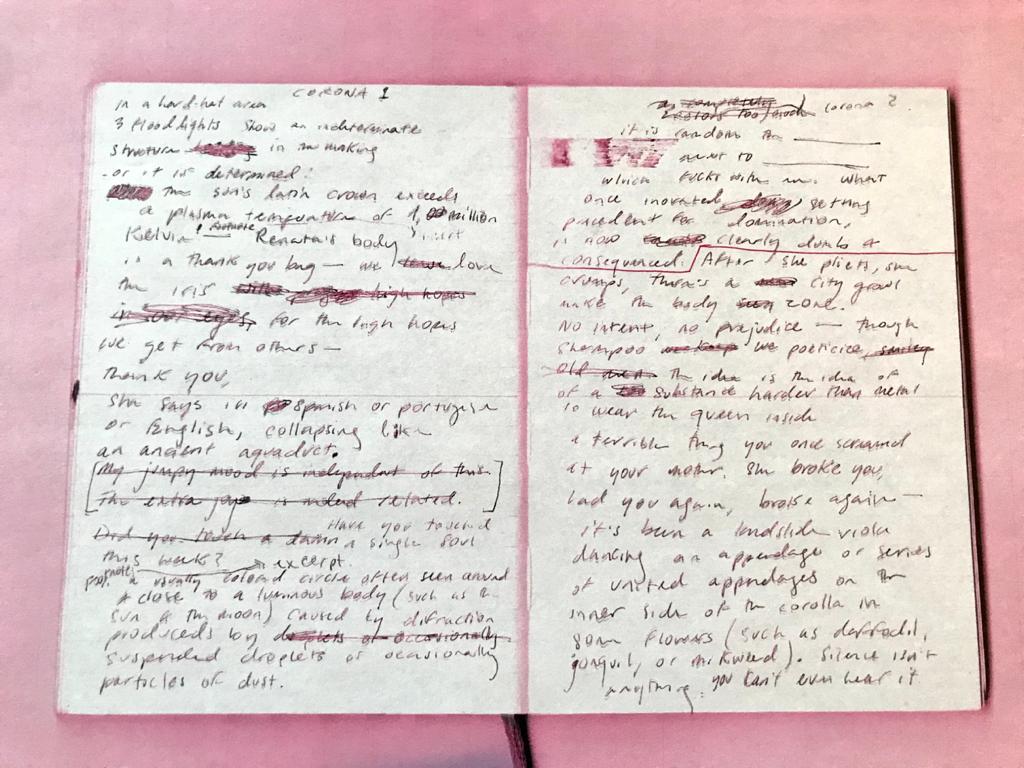 CORONA 1
in a hard-hat area
3 floodlights show an indeterminate
structure in the making
or it is determined:
the sun's latin crown exceeds
a plasma temperature of 1, million
Kelvin! footnote Renata's body insert
is a thank you bag — we love
the iris with high hopes
in our eyes, for the high hopes
we get from others —
Thank you,
she says in Spanish or portugese
or English, collapsing like
an ancient aquaduct.
[My jumpy mood is independent of this.
The extra is indeed related.]
Did you touch a damn Have you touched a single soul
this week? excerpt.
note: a usually colored circle often seen around
& close to a luminous body (such as the
sun or the moon) caused by difraction
produced by droplets or occasionally
suspended droplets or ocasionally
particles of dust.
completely
too much corona 2
it is random the ____
next to ____
which fucks with me. What
once inovated, setting
precedent for domination,
is now clearly dumb &
consequenced. After she pliets, she
crumps, there's a city growl
make the body zone.
No intent, no prejudice — though
shampoo we keep we poeticize, smiley
old the idea is the idea of
of a substance harder than metal
to wear the queen inside
a terrible thing you once screamed
at your mother. She broke you,
had you again, broke again —
it's been a landslide viola
dancing an appendage or series
of united appendages on the
inner side of the corolla in
some flowers (such as daffodil,
jonquil, or milkweed). Silence isn't
anything. you can't even hear it